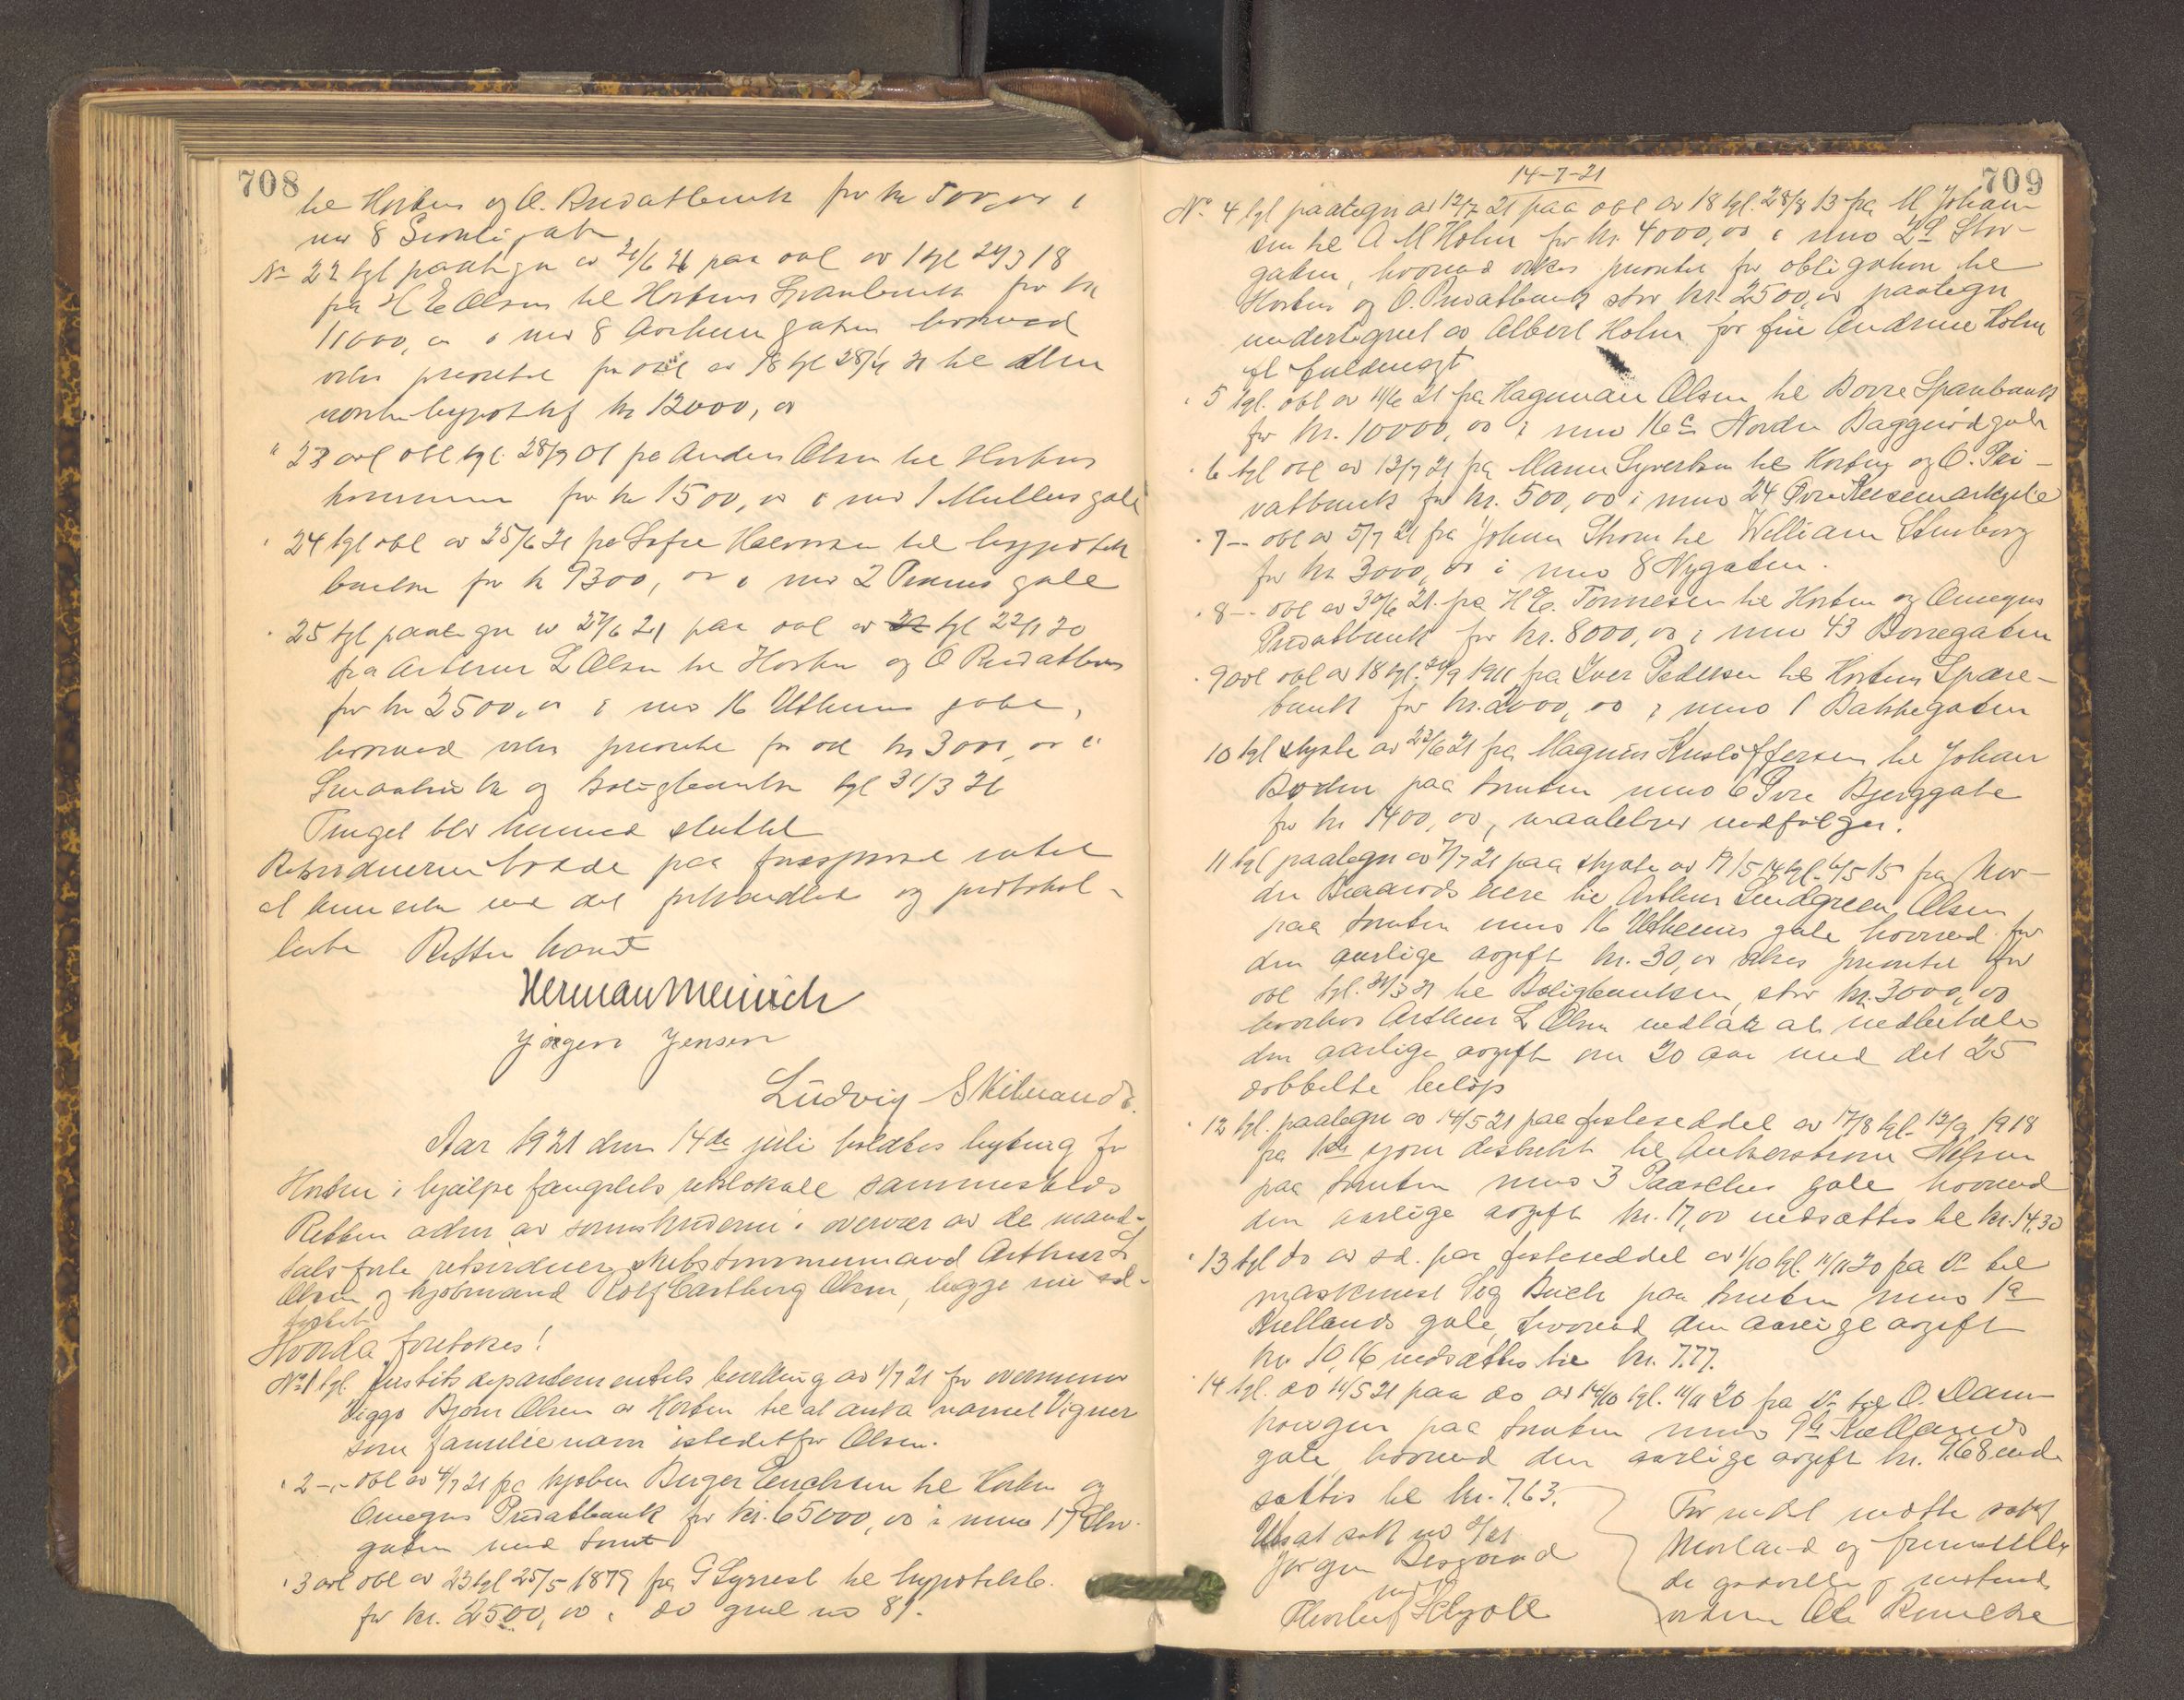 708
til Horten og O. Privatbank for kr 500,00 i
no 8
No 22 tgl paategn av 21/6 21 paa obl av 1 tgl 29/3 18
fra H E Olsen til Hortens Sparebank for kr
11000,00 i no 8 Aarhus gaten hvorved
vikes prioritet for obl av 18 tgl 28/4 21 til
hypothek kr 12000,00
" 23 avl obl tgl. 28/9 01 fra Anders Olsen til Hortens
kommune for kr 1500,00 i no 1 Mullers gate
" 24 tgl obl av 25/6 21 fra Sofie Halvorsen til hypothek
banken for kr 9300,00 i no 2 gate
" 25 tgl paategn av 27/6 21 paa obl av 22 tgl 22/1 20
fra Arthur L Olsen til Horten og O Privatbank
for kr 2500,00 i no 16 Uthuus gate,
hvorved vikes prioritet for obl kr 3000,00 til
Smaabruk og Boligbanken tgl 31/3 21
Tinget blev hermed sluttet
Retsvidnerne paa forespørsel intet
at bemerke ved det forhandlede og protokol-
lerte Retten hævet
Herman Meinich
Jørgen Jensen
Ludvig Skilbrand
Aar 1921 den 14de juli holdtes byting for
Horten i hjælpefængslets retslokale sammesteds
Retten adm av sorenskriveren i overvær av de mand-
talsførte retsvidner, skibstømmermand Arthur L
Olsen og kjøbmand Rolf Carlberg Olsen, begge nu ed-
fæstet
Hvorda foretokes!
No 1 tgl. Justitsdepartementets bevilling av 1/7 21 for
Viggo Bjørn Olsen av Horten til at anta navnet Vigner
som familienavn istedetfor Olsen.
" 2 -,- obl av 4/7 21 fra kjøbm Birger Erichsen til Horten og
Omegns Privatbank for kr. 65000,00 i mno 17
gaten med tomt
" 3 avl obl av 23 tgl 25/5 1879 fra G Syvest til hypotekb.
for kr. 2500,00 i do grul no 81.
14-7-21
709
No. 4 tgl paategn av 12/7 21 paa obl av 18 tgl. 28/8 13 fra M Johan-
sen til A M Holm for kr. 4000,00 i mno 29 Stor-
gaten, hvorved vikes prioritet for obligation til
Horten og O. Privatbank stor kr. 2500,00 paategn
undertegnet av Albert Holm for frue Andrine Holm
fl fuldmagt
" 5 tgl. obl av 11/6 21 fra Hagman Olsen til Borre Sparebank
for kr. 10000,00 i mno 16c Nordre Baggerødgate
" 6 tgl obl av 13/7 21 fra Marie Syvertsen til Horten og O. Pri-
vatbank for kr. 500,00 i mno 24 Øvre Keisemarkgate
" 7 -- obl av 5/7 21 fra Johan Strøm til William Stenborg
for kr. 3000,00 i mno 8 Nygaten.
" 8 -- obl av 30/6 21. fra H E. Tønnesen til Horten og Omegns
Privatbank for kr. 8000,00 i mno 43 Borregaten
" 9 avl obl av 18 tgl. 20/9 1911 fra Iver Pedersen til Hortens Spare-
bank for kr. 2000,00 i mno 1 Bakkegaten
10 tgl skjøte av 23/6 21 fra Magnus Kristoffersen til Johan
Boden paa tomten mno 6 Øvre Bjerggate
for kr 1400,00, maalebrev medfølger.
11 tgl paategn av 7/7 21 paa skjøte av 19/5 14 tgl. 6/5 15 fra Nor-
dre Braarøds eiere til Arthur Lindgreen Olsen
paa tomten mno 16 Uthuus gate hvorved for
den aarlige avgift kr. 30,00 vikes prioritet for
obl tgl. 31/3 21 til Boligbanken, stor kr. 3000,00
hvorhos Arthur L Olsen vedtar at nedbetale
den aarlige avgift om 20 aar med det 25
dobbelte beløp
" 12 tgl. paategn av 14/5 21 paa festeseddel av 17/8 tgl. 12/9 1918
fra 1ste sjøm distrikt til Ankerstrøm Nilsen
paa tomten mno 3 Paaskes gate hvorved
den aarlige avgift kr. 17,00 nedsættes til kr. 14,30
" 13 tgl do av s.d. paa festeseddel av 1/10 tgl. 11/11 20 fra do til
maskinist Sig Buch paa tomten mno 1a
Kiellands gate, hvorved den aarlige avgift
kr 10,16 nedsættes til kr. 7.77.
" 14 tgl. do 11/5 21 paa do av 14/10 tgl. 11/11 20 fra do til O. Dam-
haugen paa tomten mno 9a Kiellands
gate hvorved den aarlige avgift kr. 9.68 ned-
sættes til kr. 7.63.
Utsat sak no 9/21
Jørgen Besgaard
mot
Thorleif Schjøll
For retten møtte
Morland og fremstille
de
Ole